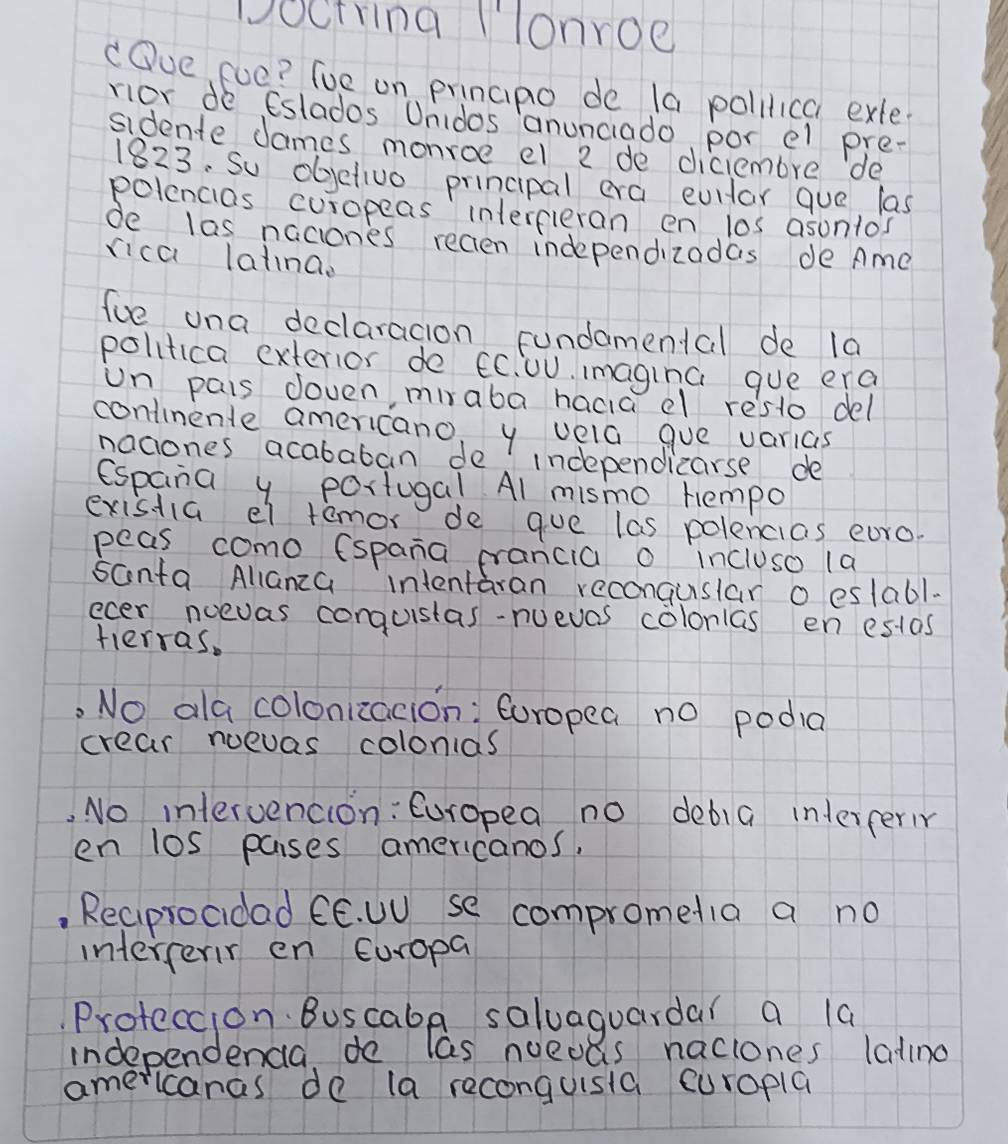 Doctrina Monroe
¿Que fue? fue un principio de la politica exte-
rior de Estados Unidos anunciado por el pre-
sidente James monroe el 2 de diciembre de
1823. Su objetivo principal era evitar que las
potencias europeas interfieran en los asuntos
de las naciones recien independizadas de Ame
rica latina.
fue una declaracion fundamental de la
politica exterior de EE.UU. imagina que era
un pais Joven, miraba hacia el resto del
continente americano y veia que varias
naciones acababan de independizarse de
España y portugal Al mismo tiempo
existia el temor de que las potencias euro-
peas como España francia o incluso la
santa Alianza intentaran reconquistar o establ-
ecer nuevas conquistas - nuevas colonias en estas
tierras.
. No ala colonización: Europea no podia
crear nuevas colonias
. No intervención: Europea no debia interferir
en los paises americanos.
. Reciprocidad EE.UU se comprometia a no
interferir en Europa
. Proteccion. Buscaba salvaguardar a la
independencia de las nuevas naciones latino
americanas de la reconquista europia